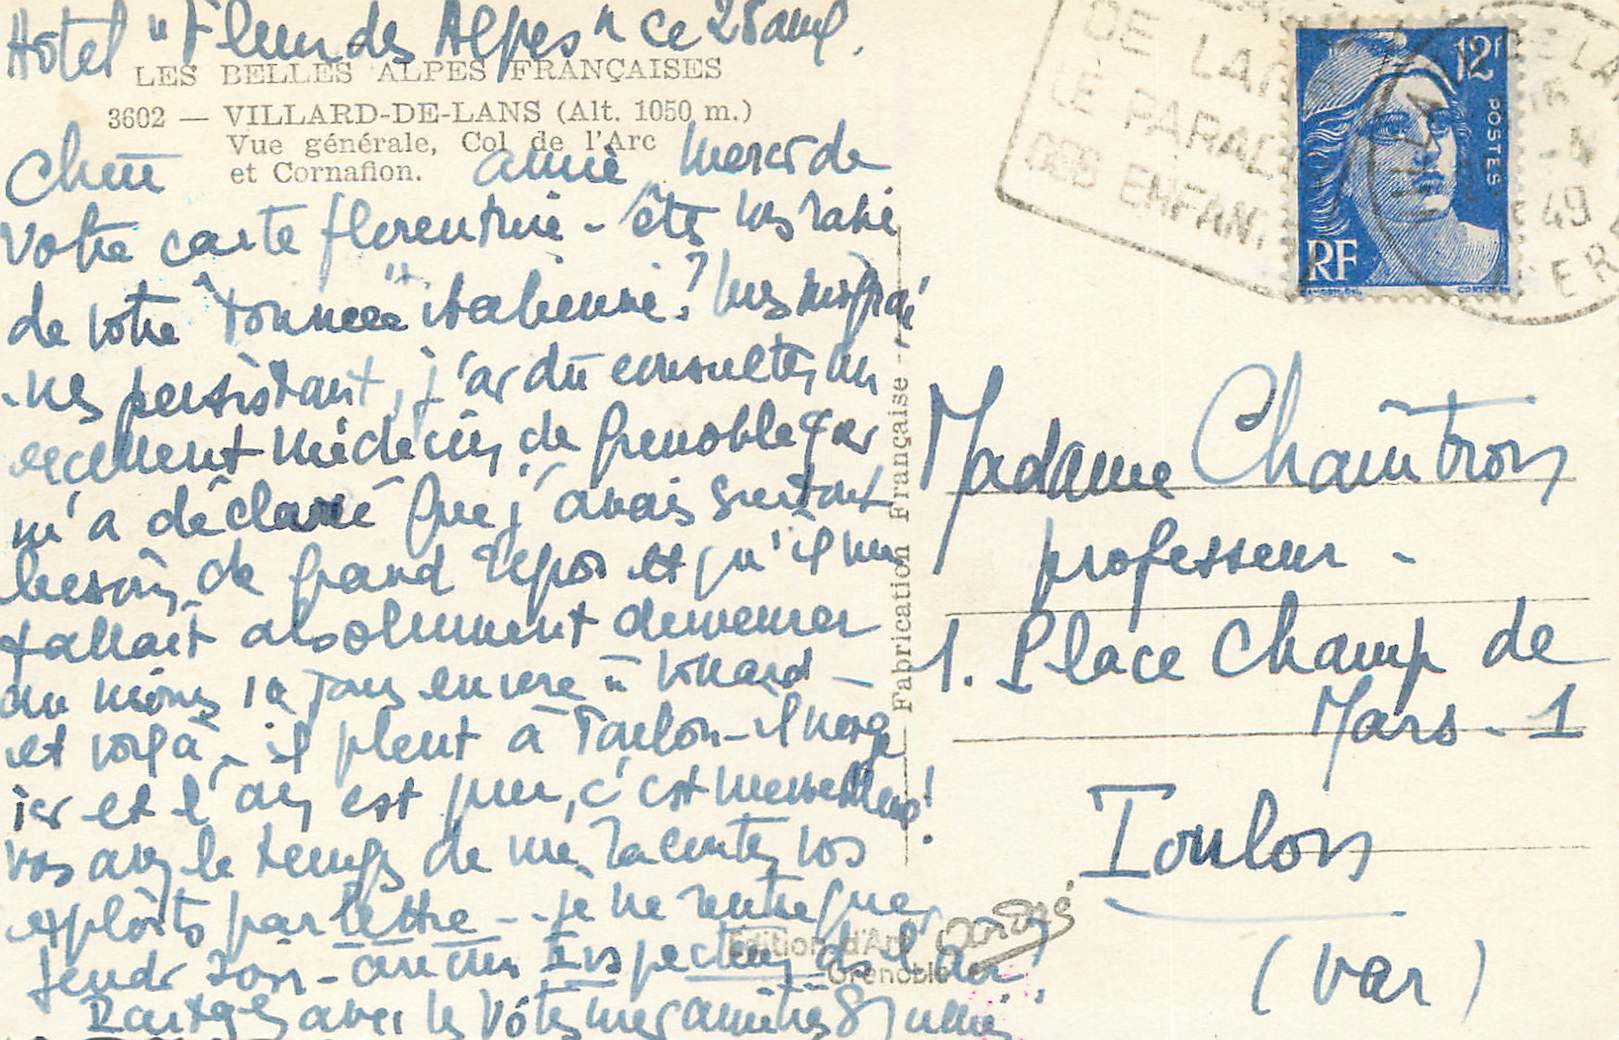 Hôtel "Fleur des Alpes" ce 28 avril.
LES BELLES ALPES FRANÇAISES
3602 — VILLARD-DE-LANS (Alt. 1050 m.)
Vue générale, Col de l'Arc
et Cornafion.
Chère amie, Merci de
votre carte florentine - êtes vous ravie
de votre "tournée" italienne? mes migrai
-nes persistant, j'ai dû consulter un
excellent médecin de Grenoble qui
m'a déclaré que j'avais surtout
besoin de grand repos et qu'il me
fallait absolument demeurer
au moins 10 jours encore à Villard -
et voilà - il pleut à Toulon - il neige
ici et l'air est pur, c'est merveilleux!
vous avez le temps de me raconter vos
exploits par lettre - je ne rentre que
jeudi soir -
Inspecteur
Partagez avec les vôtres mes amitiés
Fabrication Française
Edition d'Art
Grenoble
DE LAN
LE PARADI
DES ENFANT
12F
POSTES
RF
49
Madame Chambron
professeur -
1. Place Champ de
Mars - 1
Toulon
(Var)